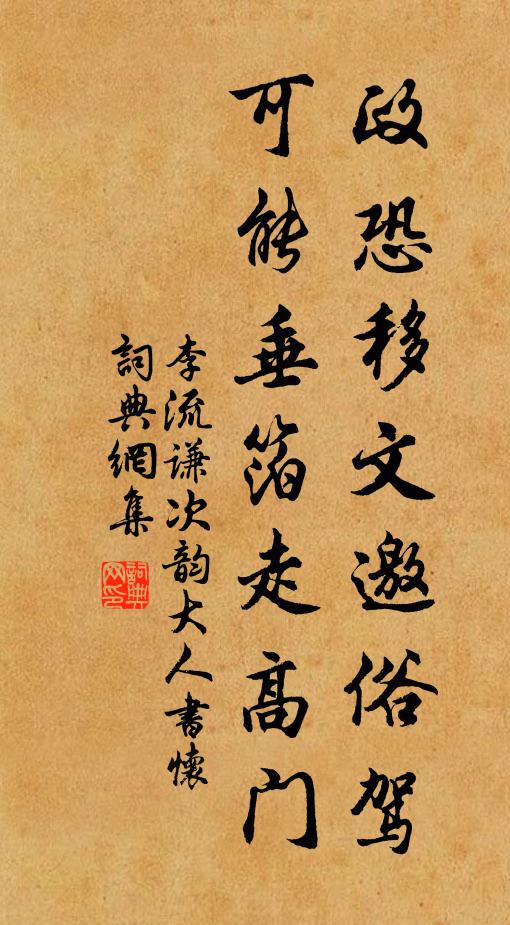 政恐移文邀俗驾
可能垂箔走高门
李流谦次韵大人書懷
詞典網集
詞典網印